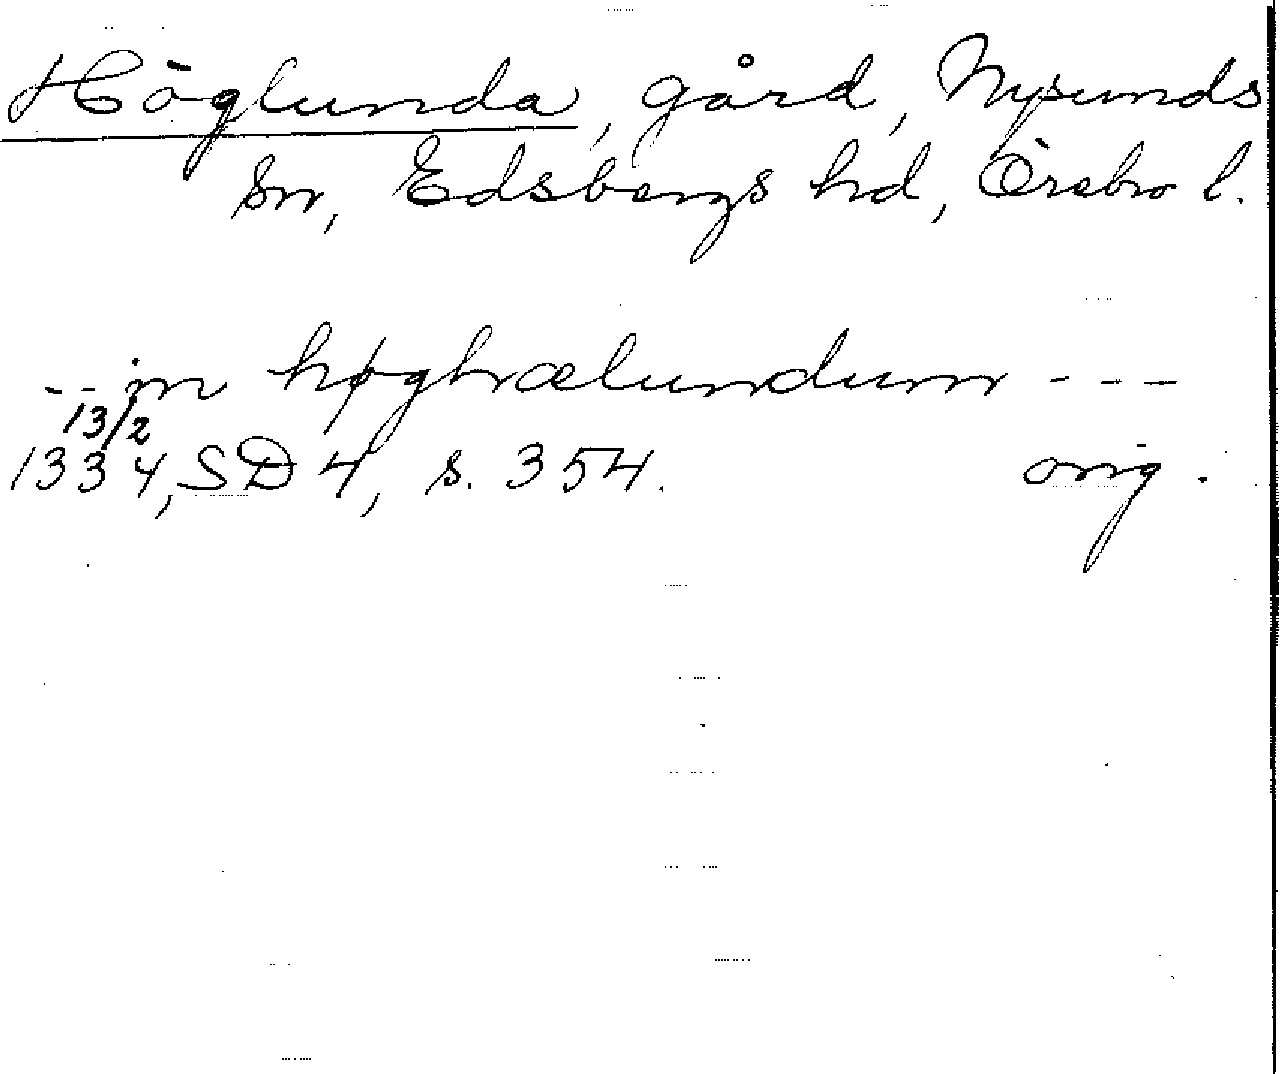 Höglunda, gård, Nysunds
sn, Edsbergs hd, Örebro l.
-- in høghælundum ---
13/2
1334, SD 4, s. 354. orig.